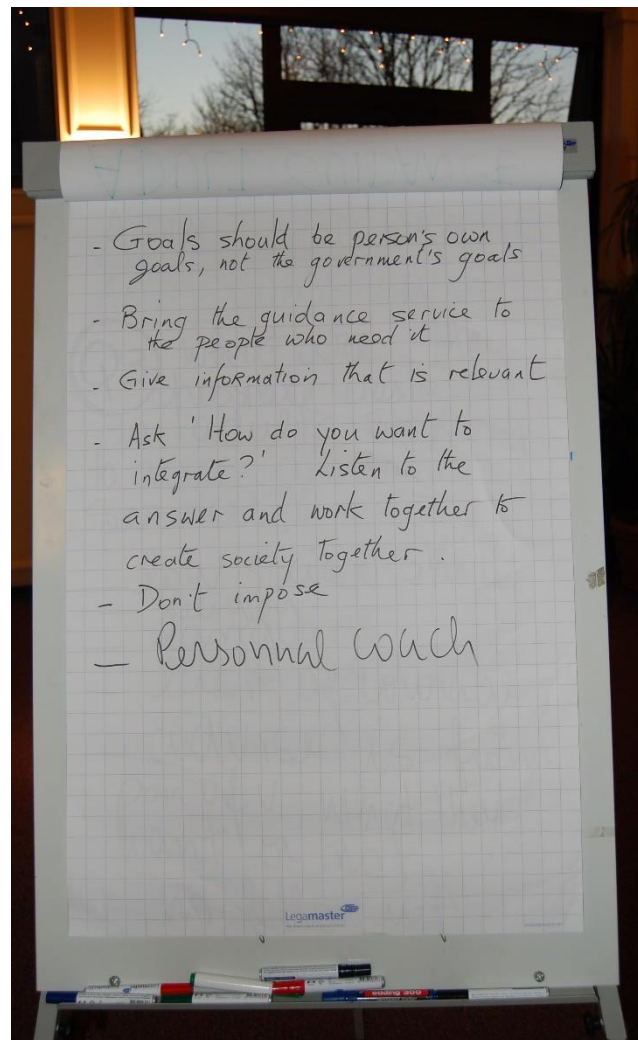 - Goals should be person's own
goals, not the government's goals
- Bring the guidance service to
the people who need it
- Give information that is relevant
- Ask 'How do you want to
integrate?' Listen to the
answer and work together to
create society together.
- Don't impose
- Personnal coach
Legamaster